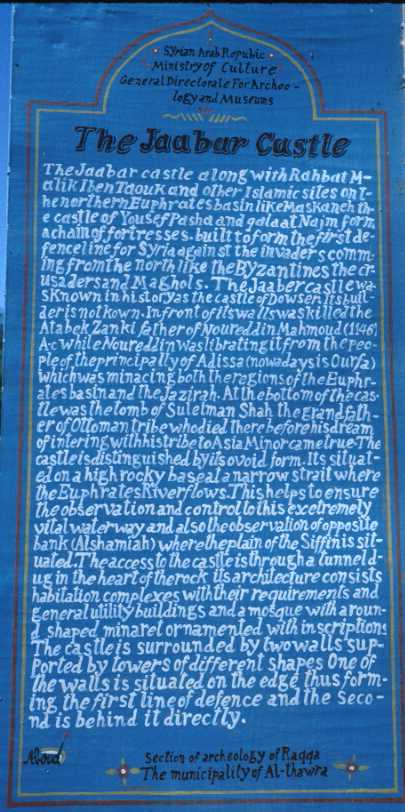 Syrian Arab Repubic
Ministry of Culture
General Directorate For Archoo-
logy and Museums
The Jaabar Castle
The Jaabar castle along with Rahbat M-
alik Iben Taouk and other Islamic sites on t-
he northern Euphrates basin like Maskaneh th-
e castle of Yousef Pasha and qalaat Najm form,
a chain of fortresses. built to form the first de-
fence line for Syria again st the invaders comm-
ing from the north like the Byzantines the cr-
usaders and Maghols. The Jaaber castle wa-
s Known in history as the castle of Dowser. Its buil-
der is not kown. In front of its walls was killed the
Atabek Zanki father of Noureddin Mahmoud (1146)
A.c while Noureddin was librating it from the peo-
ple of the principally of Adissa (nowadays is Ourfa)
which was minacing both the regions of the Euphr-
ates basin and the Jazirah. At the bottom of the cas-
tle was the tomb of Suleiman Shah the grand fath-
er of Ottoman tribe who died there before his dream
of intering with his tribe to Asia Minor came true. The
castle is distinguished by its ovoid form. Its situat-
ed on a high rocky base al a narrow strait where
the Euphrates River flows. This helps to ensure
the observation and control to this excetremely
vital water way and also the observation of opposite
bank (Alshamiah) where the plain of the Siffin is sit-
uated. The access to the castle is through a tunnel d-
ug in the heart of the rock its architecture consists
habitation complexes with their requirements and
general utility buildings and a mosque with a roun-
d shaped minaret ornamented with inscriptions
The castle is surrounded by two walls sup-
ported by towers of different shapes One of
the walls is situated on the edge thus form-
ing the first line of defence and the seco-
nd is behind it directly.
Section of archeology of Raqqa
The municipality of Al-thawra